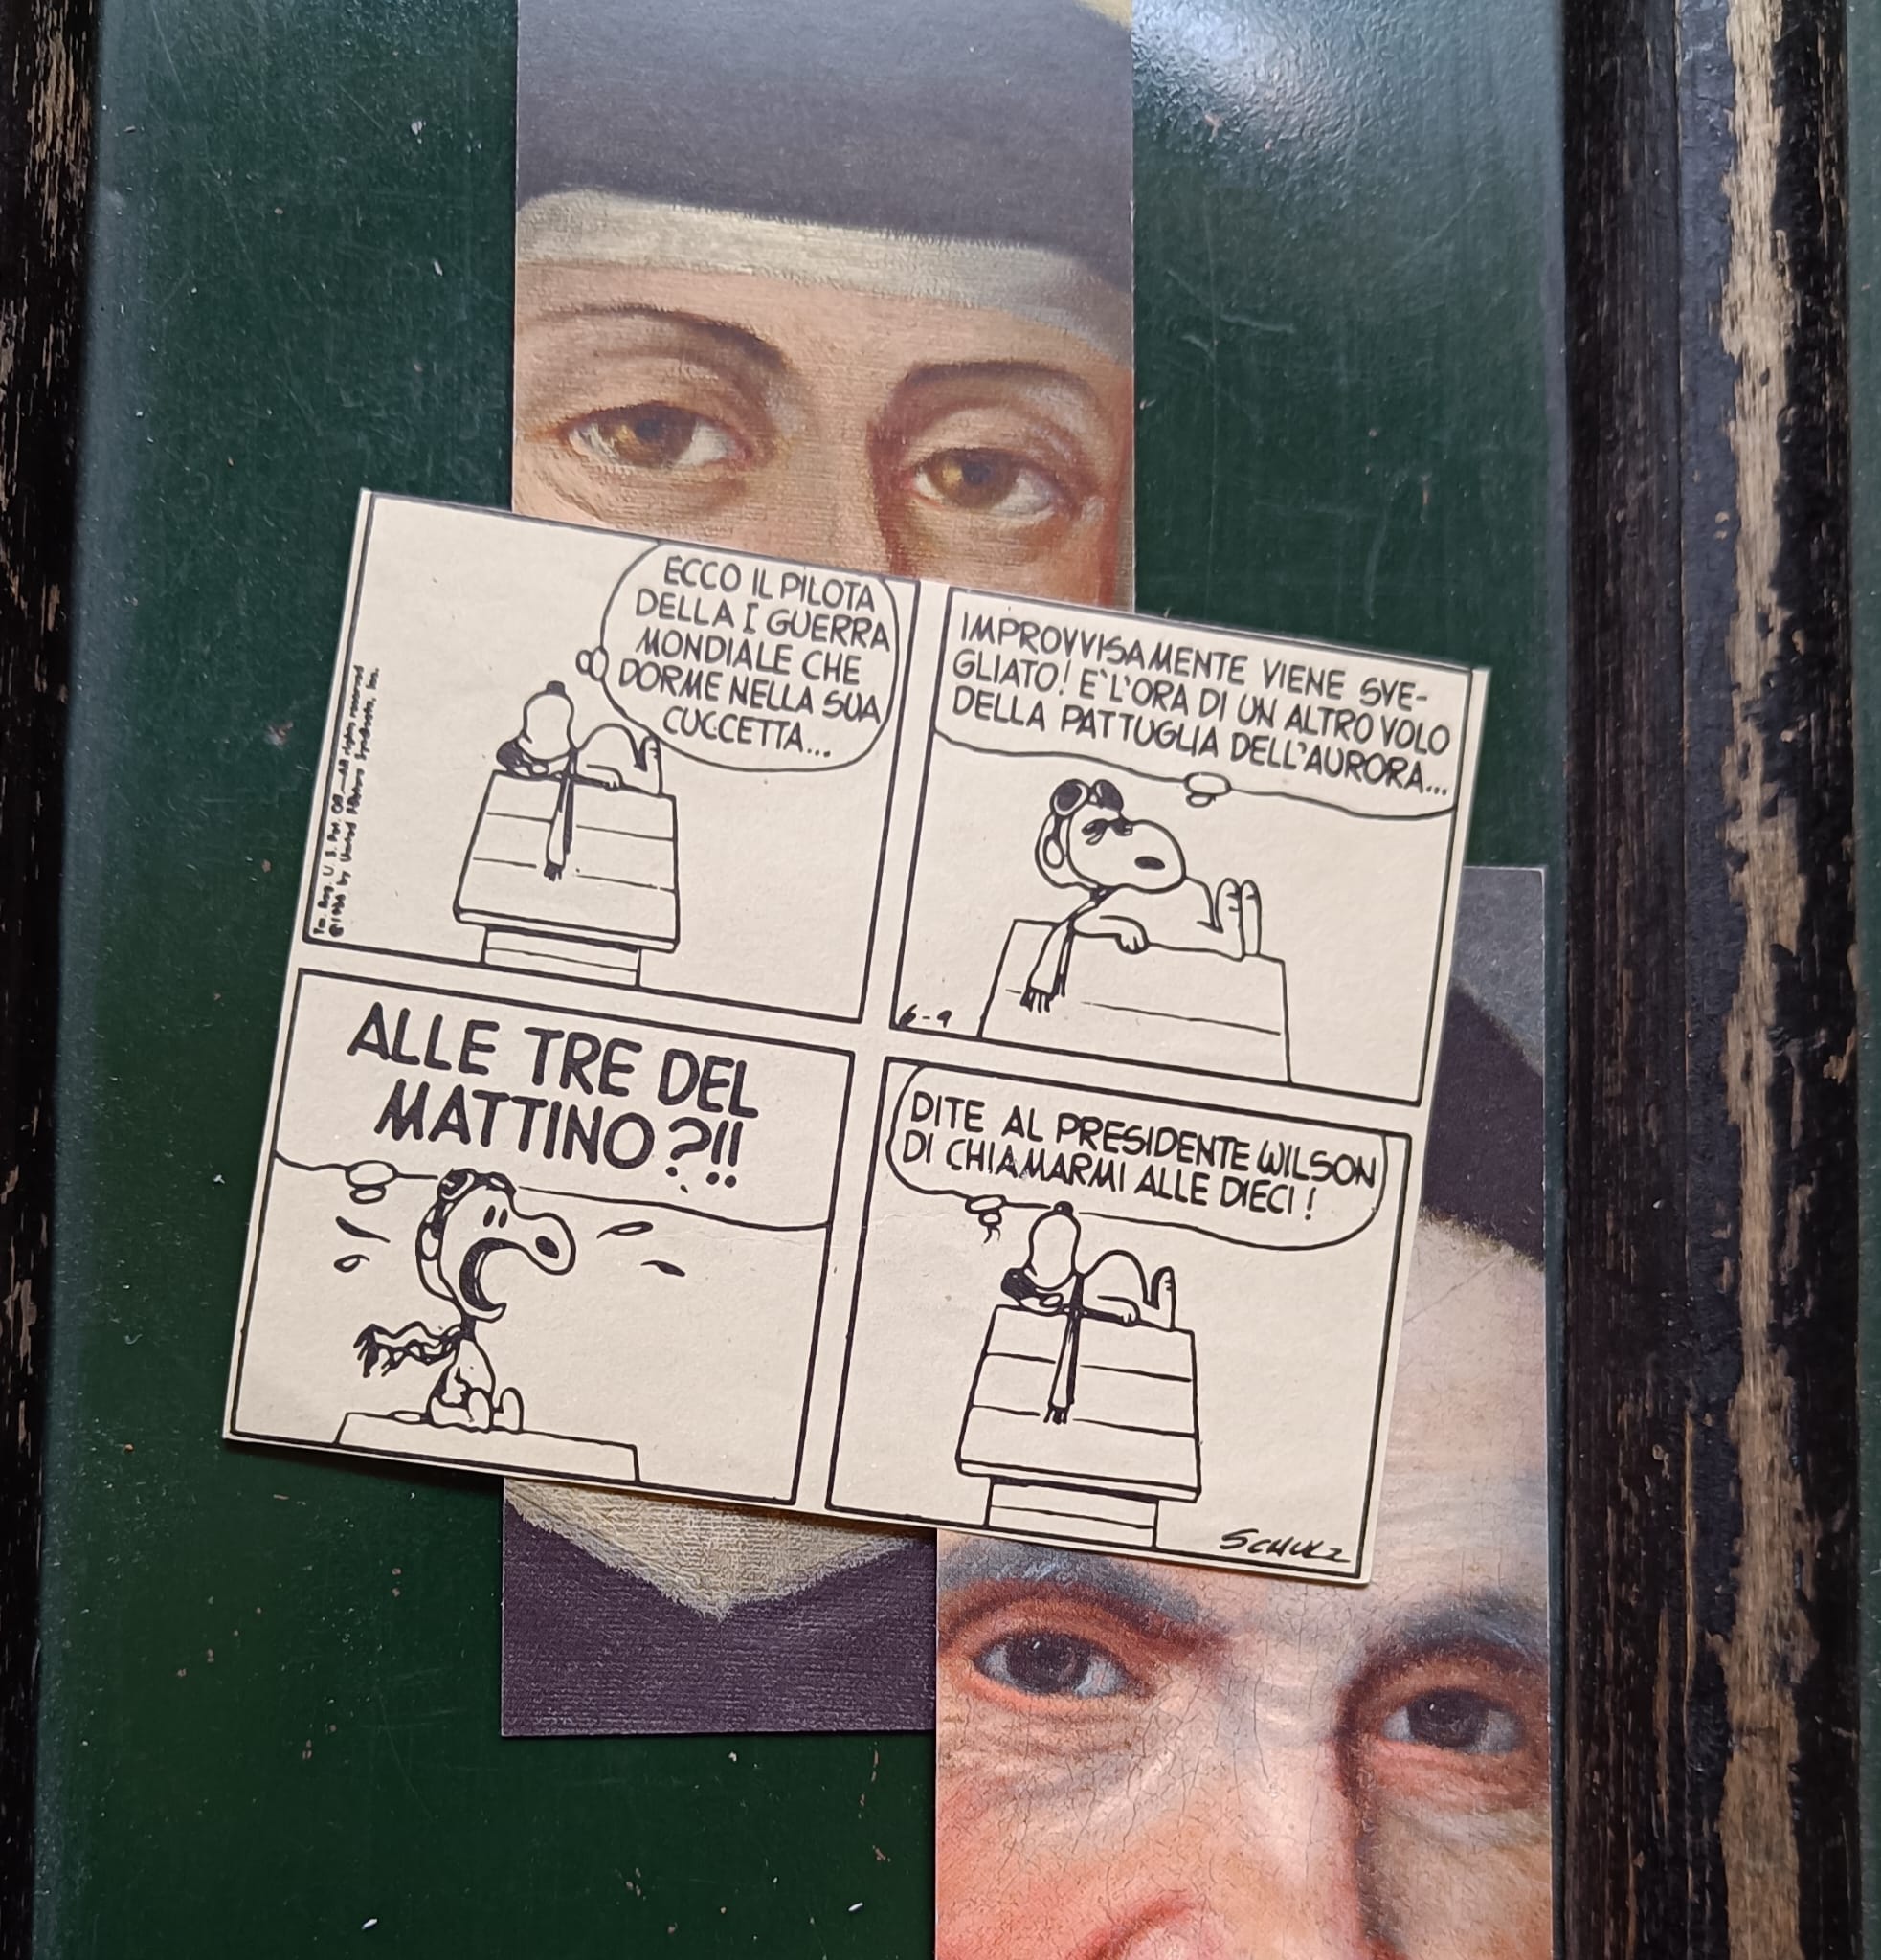 ECCO IL PILOTA
DELLA I GUERRA
MONDIALE CHE
DORME NELLA SUA
CUCCETTA...
Tm. Reg. U. S. Pat. Off.—All rights reserved
by United Feature Syndicate, Inc.
IMPROVVISAMENTE VIENE SVE-
GLIATO! E' L'ORA DI UN ALTRO VOLO
DELLA PATTUGLIA DELL'AURORA...
6-9
ALLE TRE DEL
MATTINO?!!
DITE AL PRESIDENTE WILSON
DI CHIAMARMI ALLE DIECI!
SCHULZ